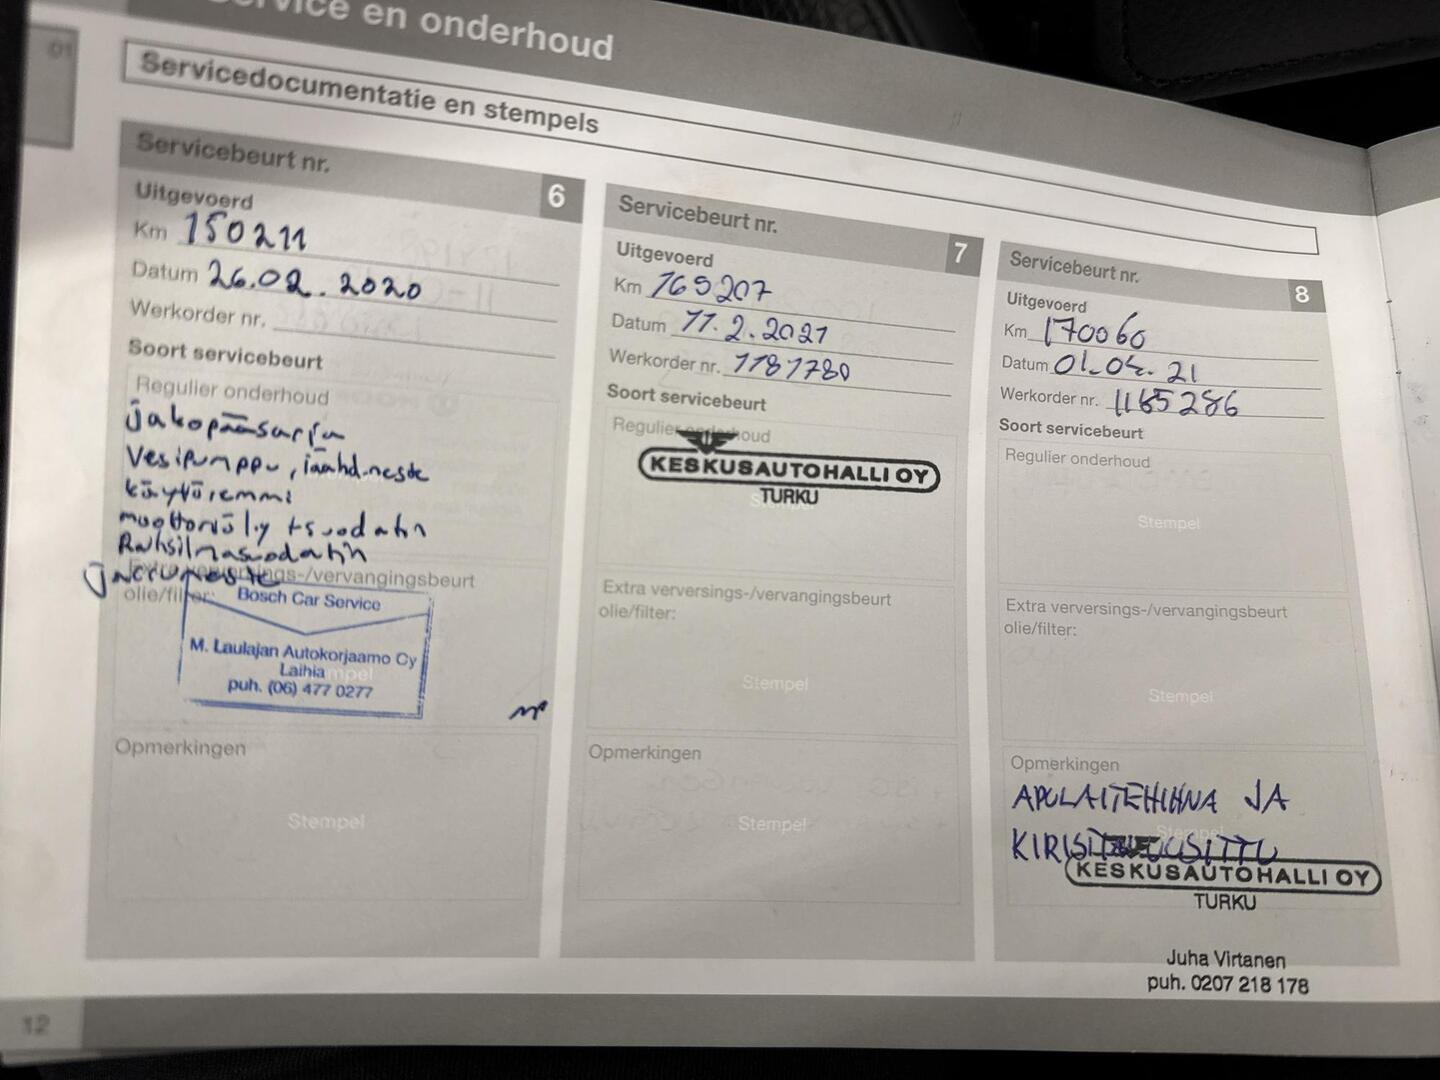 Service en onderhoud
01
Servicedocumentatie en stempels
Servicebeurt nr. 6
Uitgevoerd
Km 150211
Datum 26.02.2020
Werkorder nr.
Soort servicebeurt
Regulier onderhoud
jakopääsarja
Vesipumppu, jäähd.neste
käyttöremmi
moottoriöljy + suodatin
Raitisilmasuodatin
jarruneste
Extra verversings-/vervangingsbeurt
olie/filter:
Bosch Car Service
M. Laulajan Autokorjaamo Oy
Laihia
puh. (06) 477 0277
Opmerkingen
Stempel
Servicebeurt nr. 7
Uitgevoerd
Km 169207
Datum 11.2.2021
Werkorder nr. 1181780
Soort servicebeurt
Regulier onderhoud
KESKUSAUTOHALLI OY
TURKU
Extra verversings-/vervangingsbeurt
olie/filter:
Stempel
Opmerkingen
Stempel
Servicebeurt nr. 8
Uitgevoerd
Km 170060
Datum 01.04.21
Werkorder nr. 1185286
Soort servicebeurt
Regulier onderhoud
Stempel
Extra verversings-/vervangingsbeurt
olie/filter:
Stempel
Opmerkingen
APULAITEHIHNA JA
KIRISTIN UUSITTU
KESKUSAUTOHALLI OY
TURKU
Juha Virtanen
puh. 0207 218 178
12